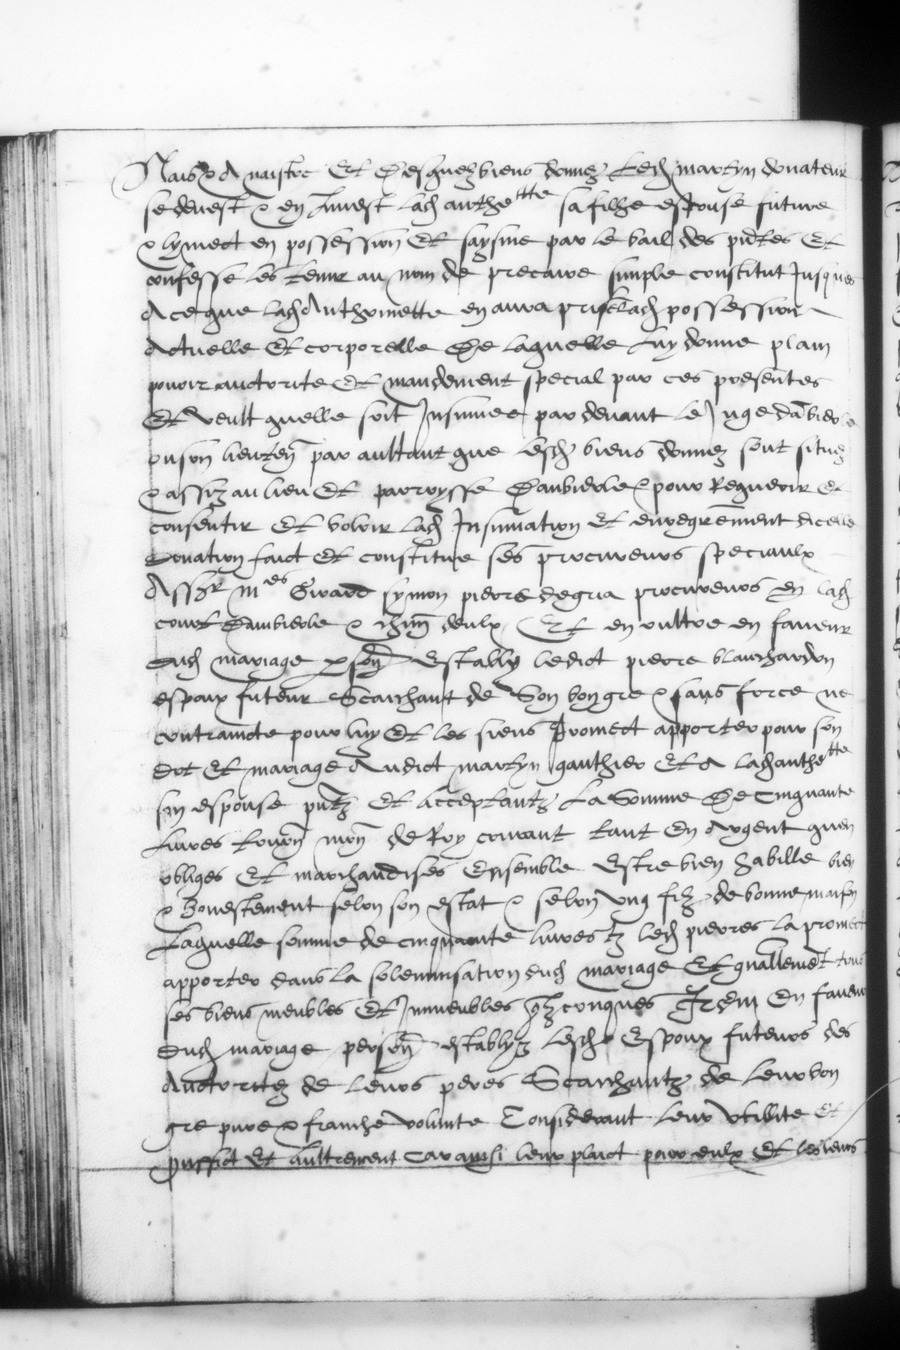 Nais & A naistre Et desquelz biens donnez led martyn donateur
se devest & en Invest lad anthe^tte sa filhe espouse future
& ly mect en possession Et saysine par le bail des pntes Et
confesse les tenir au nom de precaire simple constitut Jusques
A ce que lad Anthoinette en aura prinse lad possession
Actuelle Et corporelle De laquelle luy donne plain
povoir auctorite Et mandement special par ces presentes
Et veult quelle soit Insinuee par devant le Juge
ou son lieuten par aultant que lesd biens donnez sont situez
& assiz au lieu Et parroysse & pour Requerir Et
consentir Et voloir lad Insinuation Et enregrement dicelle
Donation faict Et constitue ses procureurs speciaulx
m^es Girard symon pierre degria procureurs en lad
court & chun deulx Et en oultre en faveur
dud mariage estably ledict pierre blanchardon
espoux futeur Scaichant de Son bon gre & sans force ne
contraincte pour luy Et les siens Promect apporter pour son
dot Et mariage Audict martyn gauthier Et A lad anthe^tte
son espouse pntz Et acceptantz La Somme De Cinquante
Livres tourn mon de Roy courant tant En Argent quen
obliges Et marchandises Ensemble Estre bien habille bien
& honestement selon son estat & selon ung filz de bonne maison
Laquelle somme de cinquante livres tz led pierres la promect
apporter dans la solempnisation dud mariage Et gnallement tous
ses biens meubles Et Inmeubles qlzconques Item En faveur
dud mariage person establyz lesd Espoux futeurs des
Auctoritez de leurs peres Scaichantz de leur bon
gre pure & franche volunte Considerant leur utillite Et
proffict Et aultrement Car ainsi leur plaict pour eulx Et les leurs